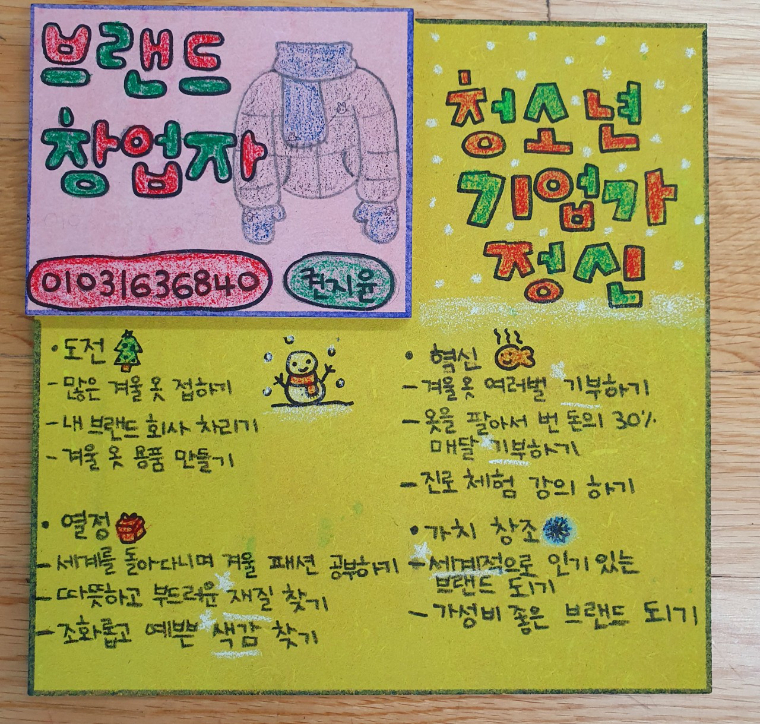 브랜드
창업자
01031636840
현지윤
청소년
기업가
정신
• 도전
- 많은 겨울 옷 접하기
- 내 브랜드 회사 차리기
- 겨울 옷 용품 만들기
• 열정
- 세계를 돌아다니며 겨울 패션 공부하기
- 따뜻하고 부드러운 재질 찾기
- 조화롭고 예쁜 색감 찾기
• 혁신
- 겨울옷 여러벌 기부하기
- 옷을 팔아서 번 돈의 30%
매달 기부하기
- 진로 체험 강의 하기
• 가치 창조
- 세계적으로 인기 있는
브랜드 되기
- 가성비 좋은 브랜드 되기